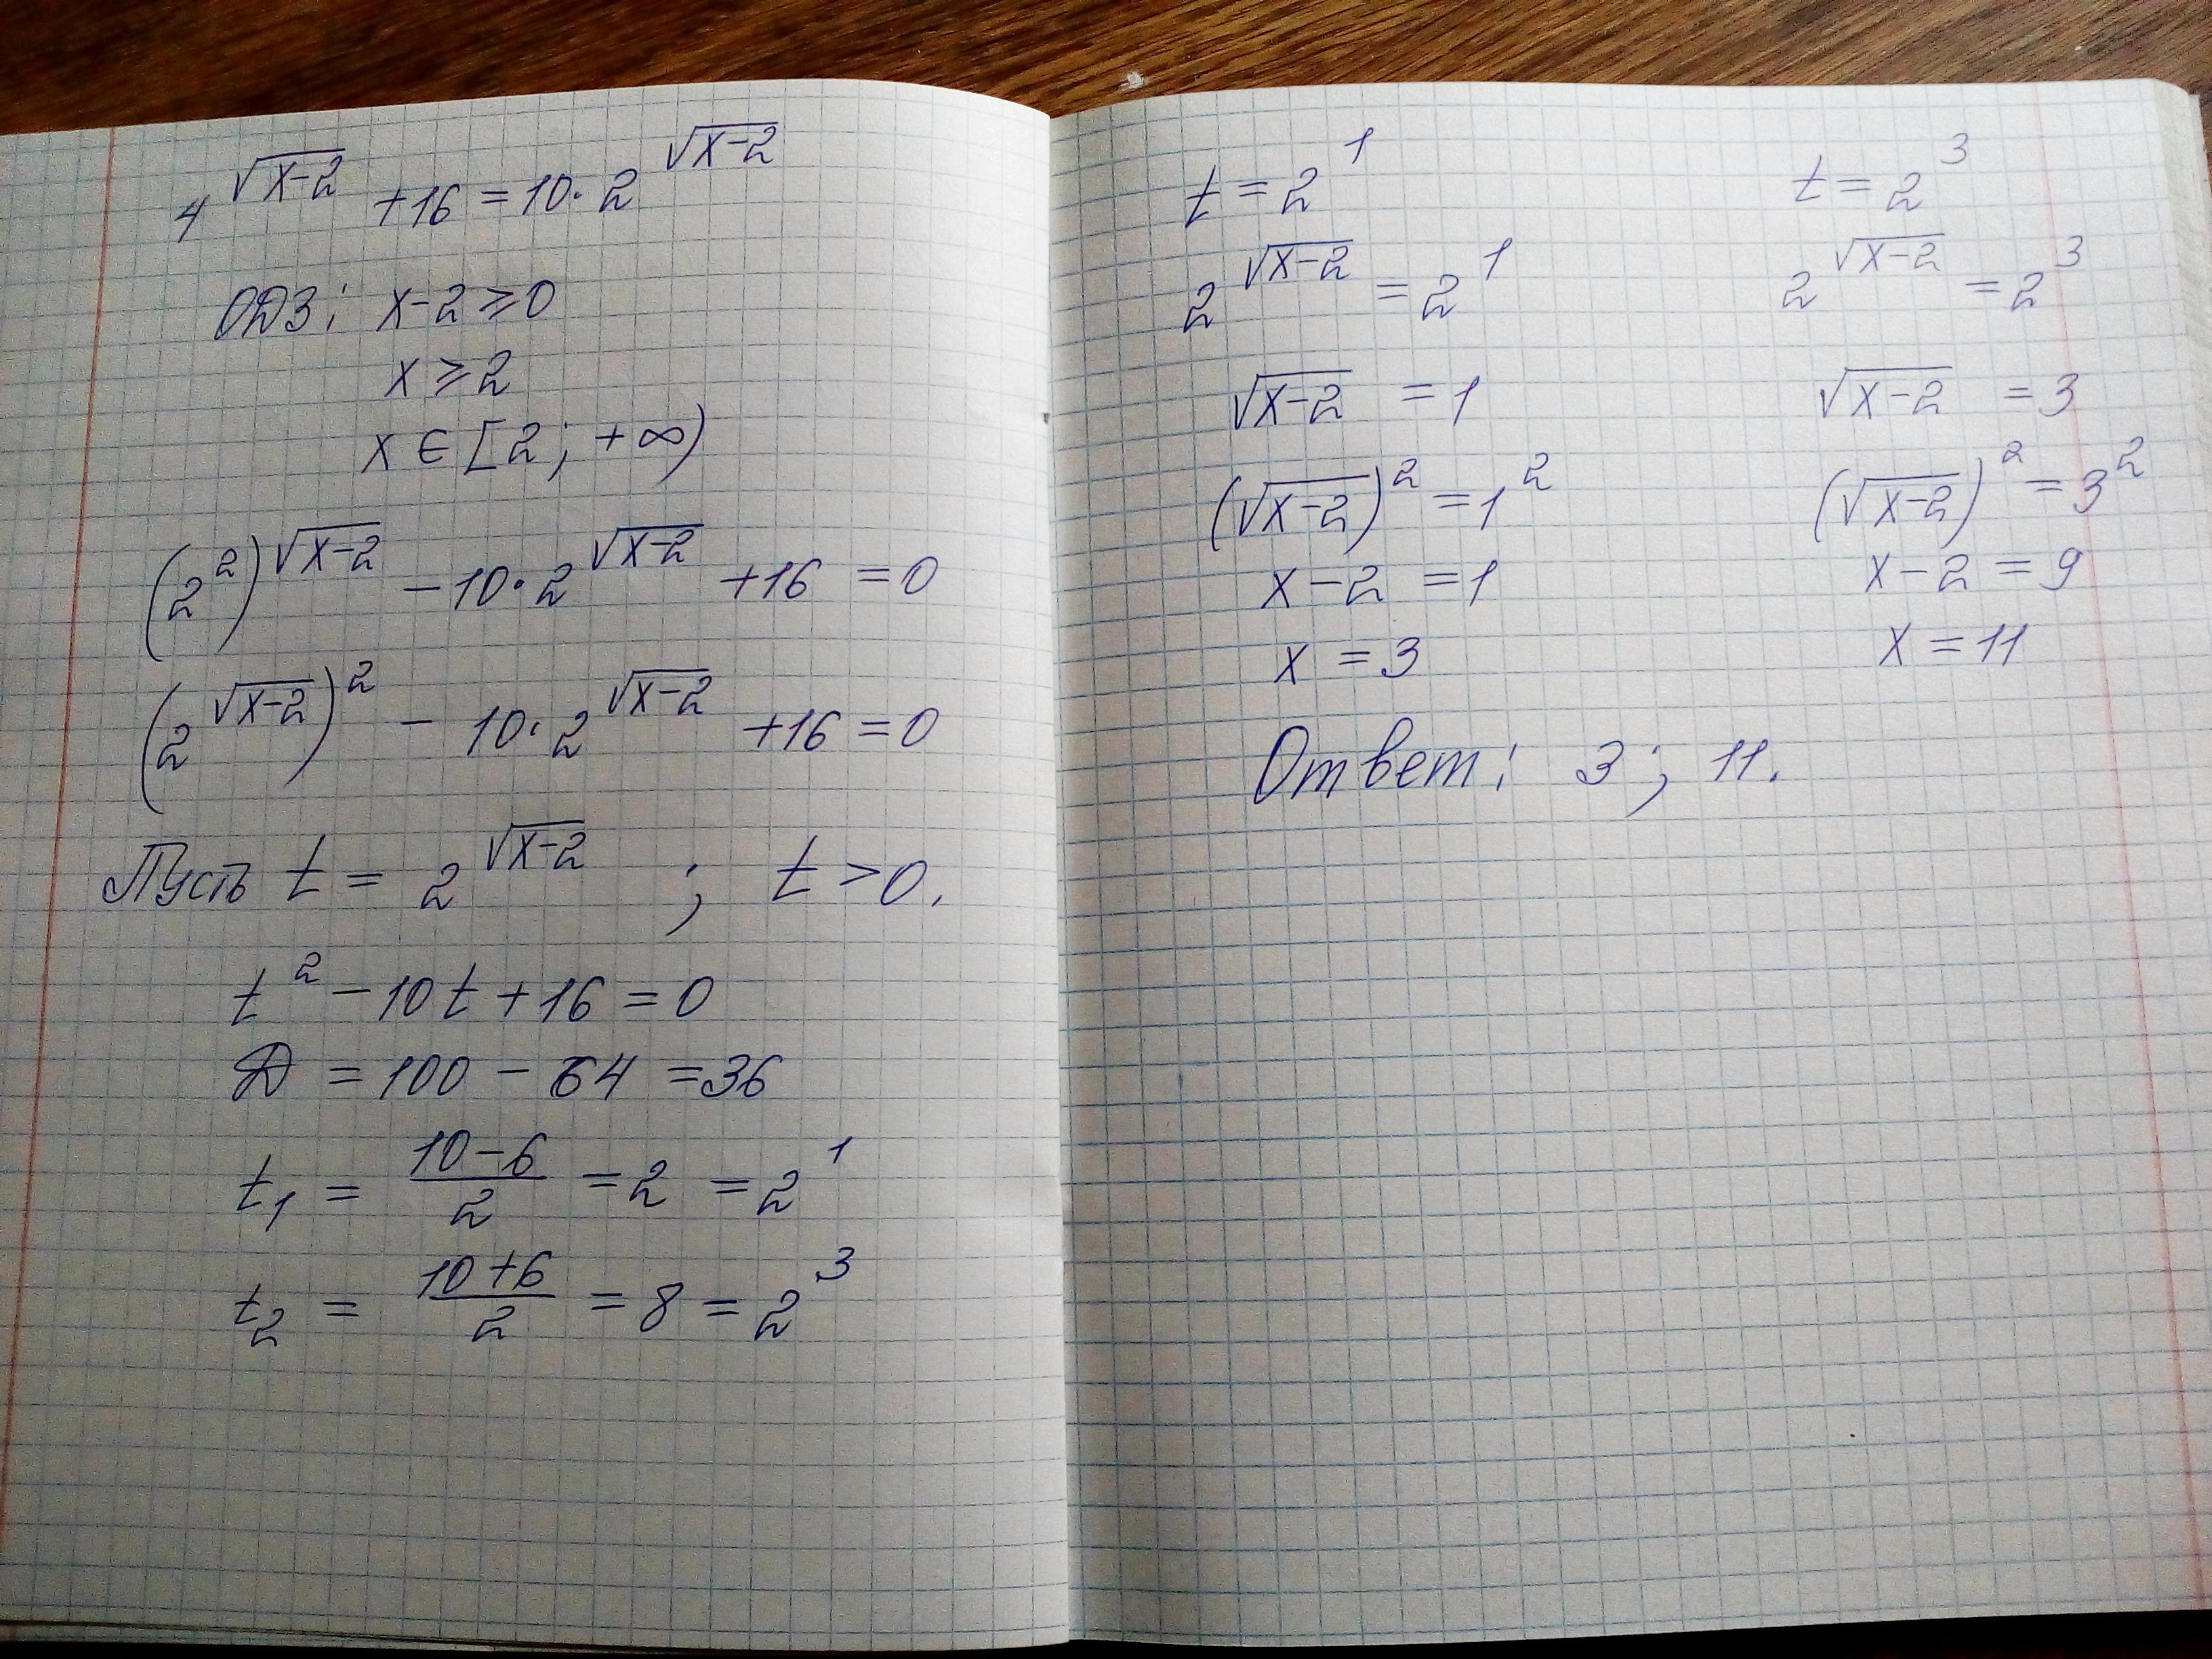 4^√(x-2) + 16 = 10 · 2^√(x-2)
ОДЗ: x - 2 ≥ 0
x ≥ 2
x ∈ [2; +∞)
(2²)^√(x-2) - 10 · 2^√(x-2) + 16 = 0
(2^√(x-2))² - 10 · 2^√(x-2) + 16 = 0
Пусть t = 2^√(x-2) ; t > 0.
t² - 10t + 16 = 0
D = 100 - 64 = 36
t₁ = (10-6)/2 = 2 = 2¹
t₂ = (10+6)/2 = 8 = 2³
t = 2¹
2^√(x-2) = 2¹
√(x-2) = 1
(√(x-2))² = 1²
x - 2 = 1
x = 3
t = 2³
2^√(x-2) = 2³
√(x-2) = 3
(√(x-2))² = 3²
x - 2 = 9
x = 11
Ответ: 3; 11.